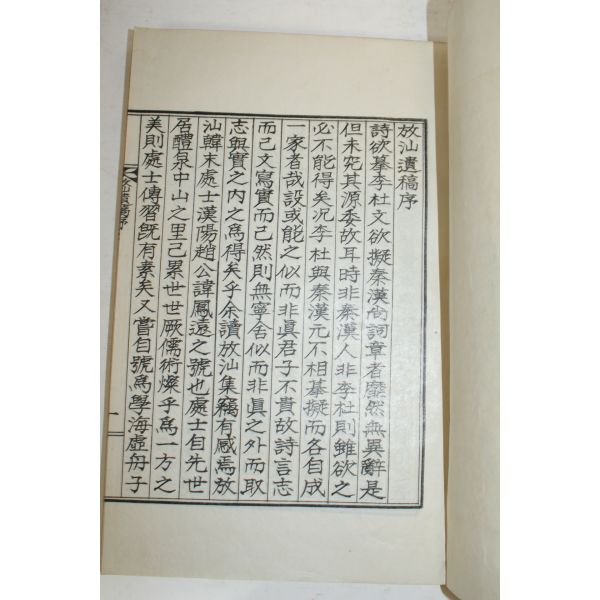 放汕遺稿序
詩欲摹李杜文欲擬秦漢尙詞章者靡然無異辭是
但未究其源委故耳時非秦漢人非李杜則雖欲之
必不能得矣况李杜與秦漢元不相摹擬而各自成
一家者哉設或能之似而非眞君子不貴故詩言志
而已文寫實而已然則無寧舍似而非眞之外而取
志與實之內之爲得矣乎余讀放汕集竊有感焉放
汕韓末處士漢陽趙公諱鳳遠之號也處士自先世
居醴泉中山之里已累世世厥儒術燦乎爲一方之
美則處士傳習旣有素矣又嘗自號爲學海虛舟子
汕遺稿序
一